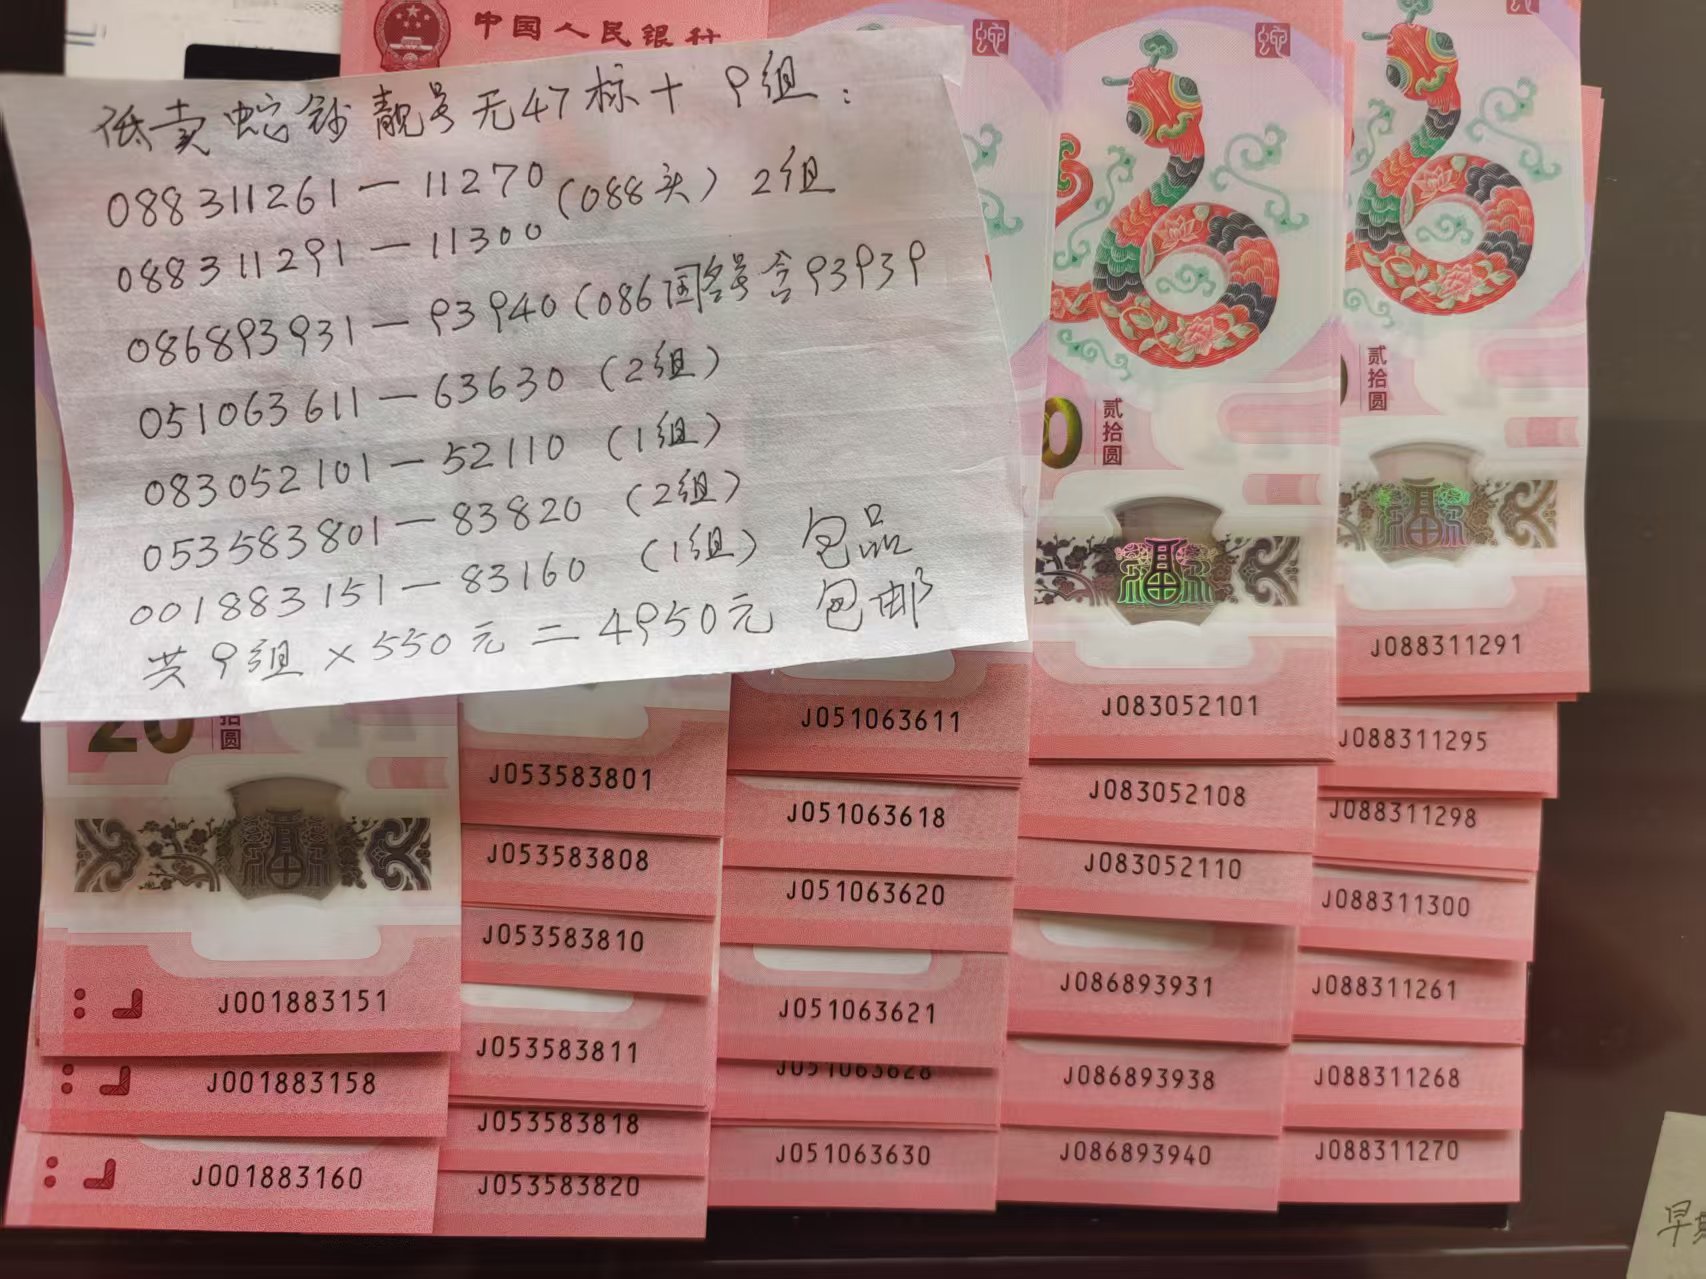 中国人民银行
低卖蛇钞靓号无47标十 9组：
088311261—11270（088头）2组
088311291—11300
086893931—93940（086国号含93939
051063611—63630（2组）
083052101—52110（1组）
053583801—83820（2组）
001883151—83160（1组）包品
共9组×550元=4950元 包邮
贰拾圆
贰拾圆
拾圆
20
J001883151
J001883158
J001883160
J053583801
J053583808
J053583810
J053583811
J053583818
J053583820
J051063611
J051063618
J051063620
J051063621
J051063628
J051063630
J083052101
J083052108
J083052110
J086893931
J086893938
J086893940
J088311291
J088311295
J088311298
J088311300
J088311261
J088311268
J088311270
早